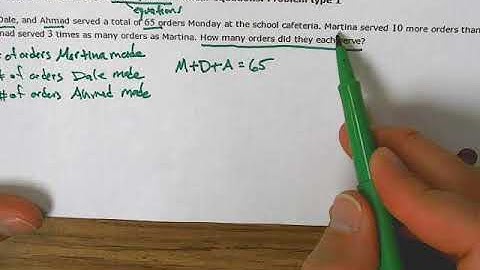 Problem type 1
equations
Dale, and Ahmad served a total of 65 orders Monday at the school cafeteria. Martina served 10 more orders than
served 3 times as many orders as Martina. How many orders did they each serve?
of orders Martina made
# of orders Dale made
# of orders Ahmad made
M+D+A=65